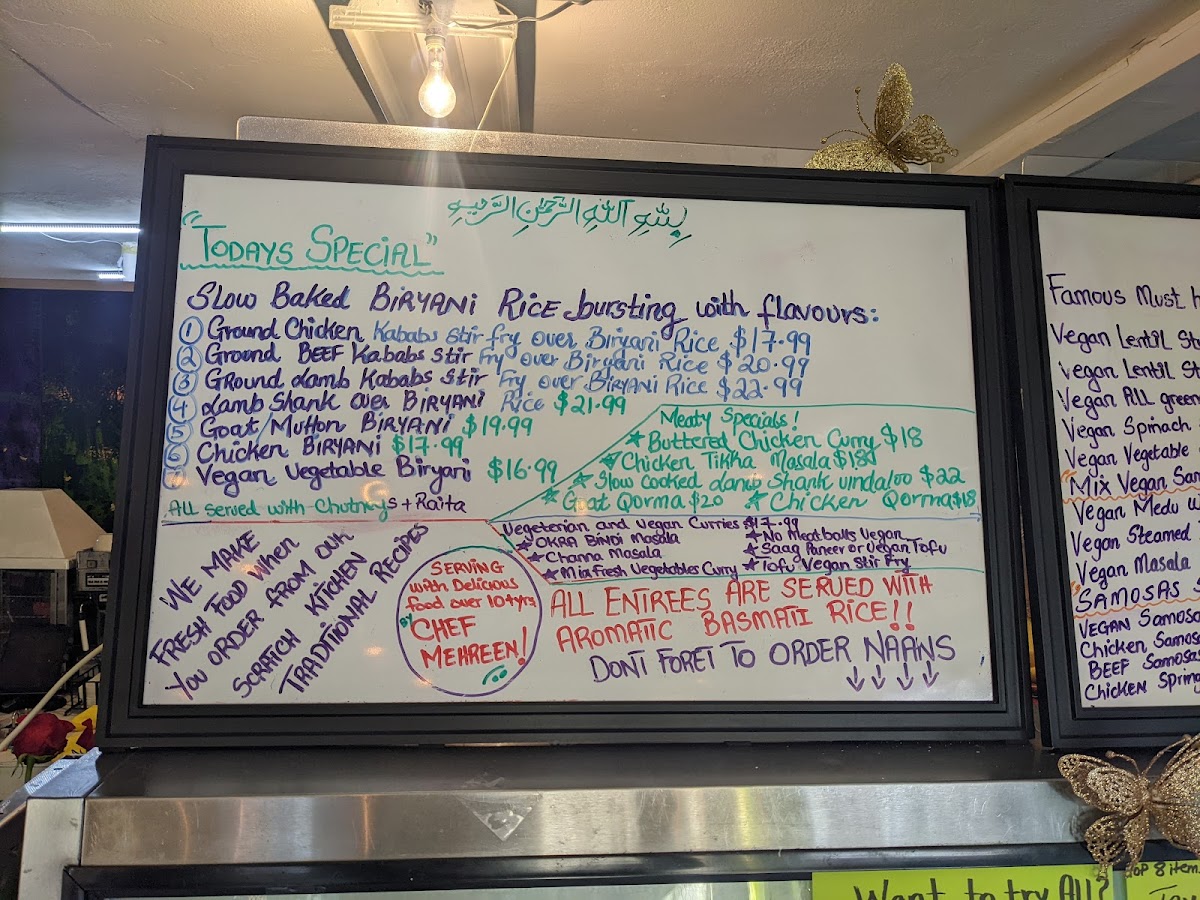 بِسْمِ اللهِ الرَّحْمٰنِ الرَّحِيْمِ
"TODAYS SPECIAL"
Slow Baked BiRYANi Rice bursting with flavours:
1 Ground Chicken Kababs Stir fry over Biryani Rice $17.99
2 Ground BEEF Kababs Stir Fry over Biryani Rice $20.99
3 GRound Lamb Kababs Stir Fry over BiRYANi Rice $22.99
4 Lamb Shank over BIRYANi Rice $21.99
5 Goat/Mutton BIRYANi $19.99
6 Chicken BIRYANI $17.99
7 Vegan Vegetable Biryani $16.99
ALL served with Chutneys + Raita
Meaty Specials!
★ Buttered Chicken Curry $18
★ Chicken Tikka Masala $18
★ Slow cooked Lamb Shank vindaloo $22
★ Goat Qorma $20 ★ Chicken Qorma $18
Vegeterian and Vegan Curries $17.99
★ OKRA BINDI Masala
★ Channa Masala
★ Mix Fresh Vegetables Curry
★ No Meatballs Vegan
★ Saag Paneer or Vegan Tofu
★ Tofu Vegan Stir Fry
WE MAKE
FRESH FOOD WHEN
YOU ORDER FROM OUR
SCRATCH KITCHEN
TRADITIONAL RECIPES
SERVING
with Delicious
food over 10+yrs
BY CHEF
MEHREEN!
ALL ENTREES ARE SERVED WITH
AROMATIC BASMATI RICE!!
DONT FORET TO ORDER NAANS
↓ ↓ ↓ ↓
Famous Must
Vegan Lentil
Vegan Lentil
Vegan ALL green
Vegan Spinach
Vegan Vegetable
Mix Vegan
Vegan Medu
Vegan Steamed
Vegan Masala
SAMOSAS
VEGAN Samosa
Chicken Samos
BEEF Samosa
Chicken Spring
Want to try All?
TOP 8 items